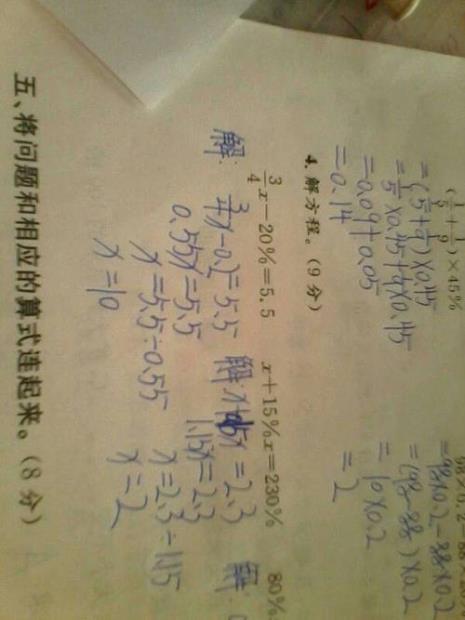 (1/5+1/9)×45%
=(1/5+1/9)×0.45
=1/5×0.45+1/9×0.45
=0.09+0.05
=0.14
=98×0.2-88×0.2
=(98-88)×0.2
=10×0.2
=2
4.解方程。(9分)
3/4x-20%=5.5
解: 3/4x-0.2=5.5
0.55x=5.5
x=5.5÷0.55
x=10
x+15%x=230%
解:x+0.15x=2.3
1.15x=2.3
x=2.3÷1.15
x=2
80%
解:
五、将问题和相应的算式连起来。(8分)